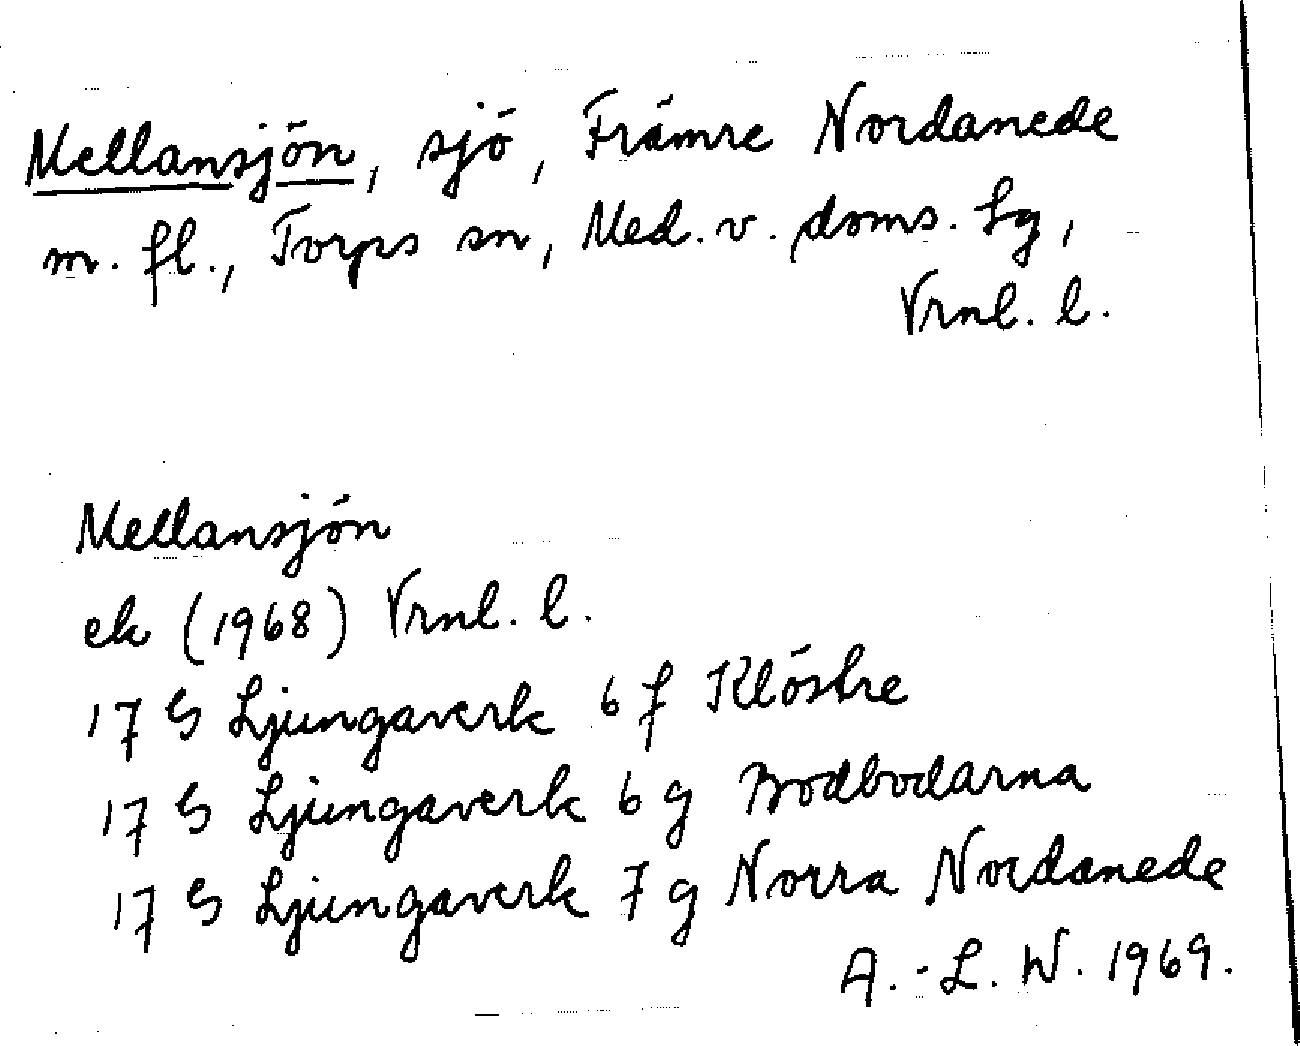 Mellansjön, sjö, Främre Nordanede
m. fl., Torps sn, Med. v. doms. Lg,
Vrnl. l.
Mellansjön
ek (1968) Vrnl. l.
17 G Ljungaverk 6 f Klöstre
17 G Ljungaverk 6 g Bodbodarna
17 G Ljungaverk 7 g Norra Nordanede
A.-L. W. 1969.